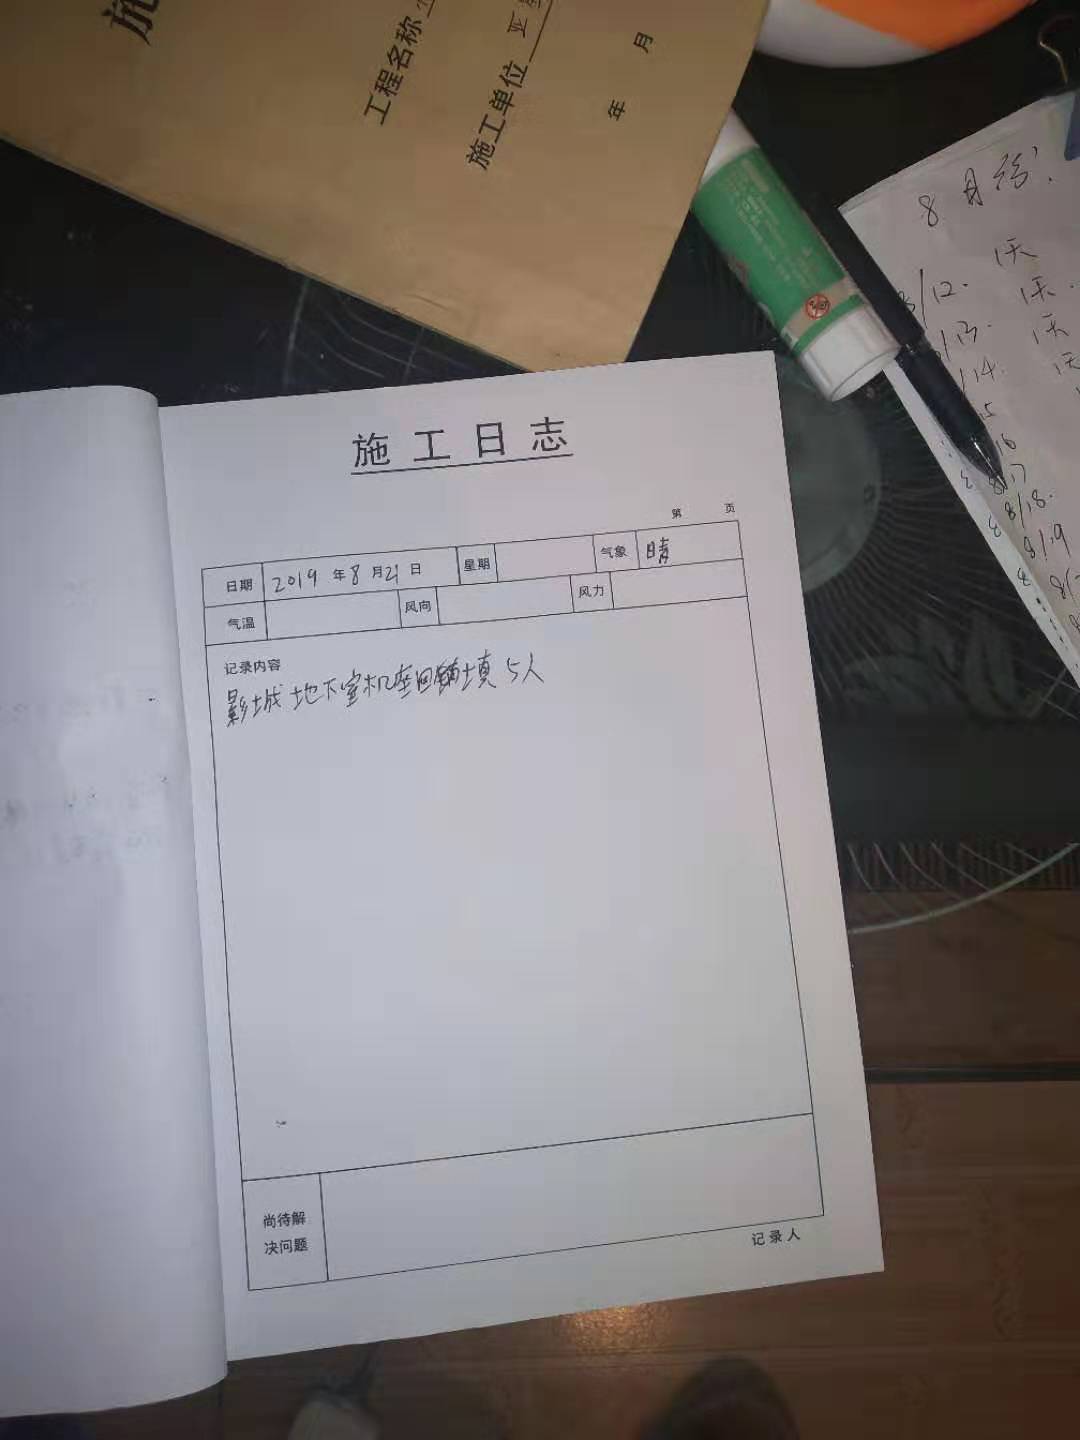 施
工程名称
施工单位
年 月
8月份:
1天
8/12. 1天.
13. 1天
/14.
15
16
8/17
8/18.
8/19
施工日志
第 页
日期 2019 年 8 月 21 日 星期 气象 晴
气温 风向 风力
记录内容
影城 地下室机座回填土 5人
尚待解
决问题
记录人